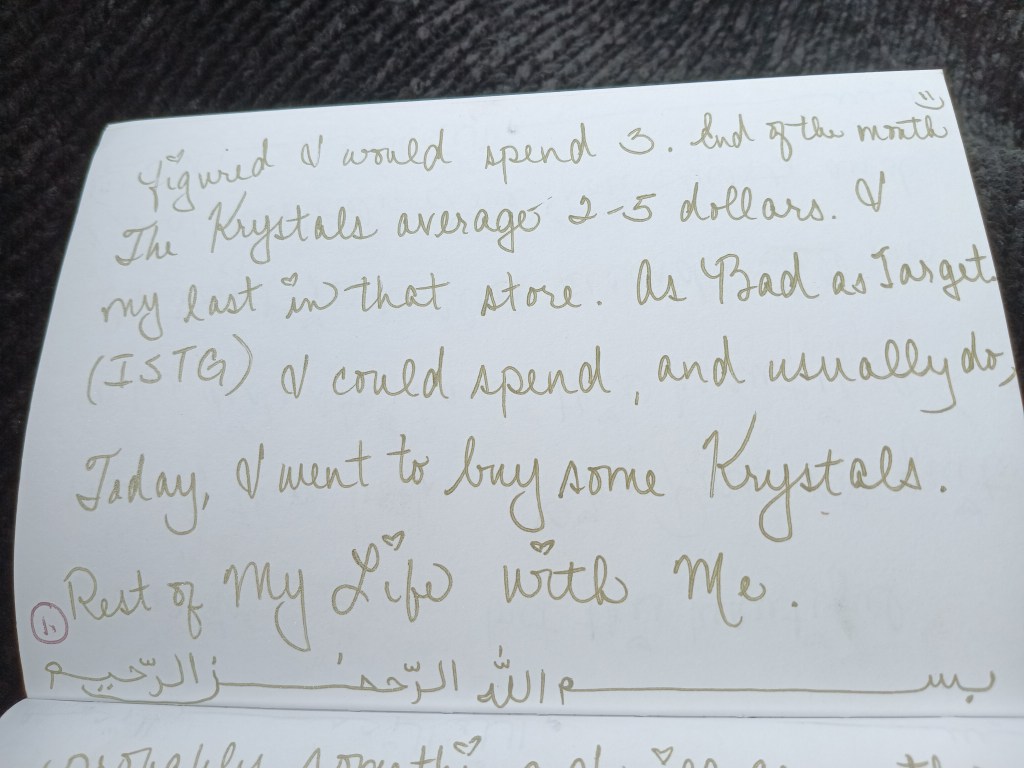 figured I would spend 3. End of the month
The Krystals average 2-5 dollars. I
my last in that store. As Bad as Target.
(ISTG) I could spend, and usually do,
Today, I went to buy some Krystals.
Rest of My Life with Me.
بســـــم اللّٰه الرّحمٰـــــن الرّحيم